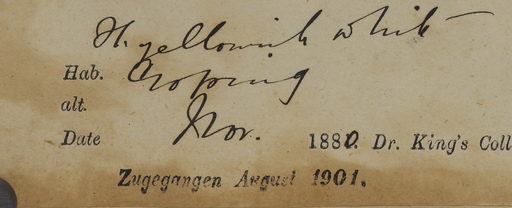 Fl. yellowish white
Hab. Goping
alt.
Date Nov. 1880. Dr. King's Coll
Zugegangen August 1901.